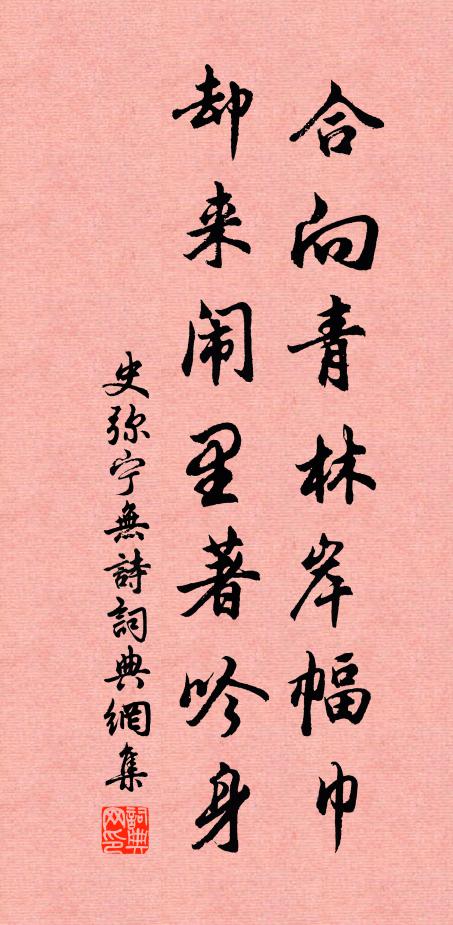 合向青林岸幅巾
却来闹里著吟身
史弥宁無詩詞典網集
詞典网印